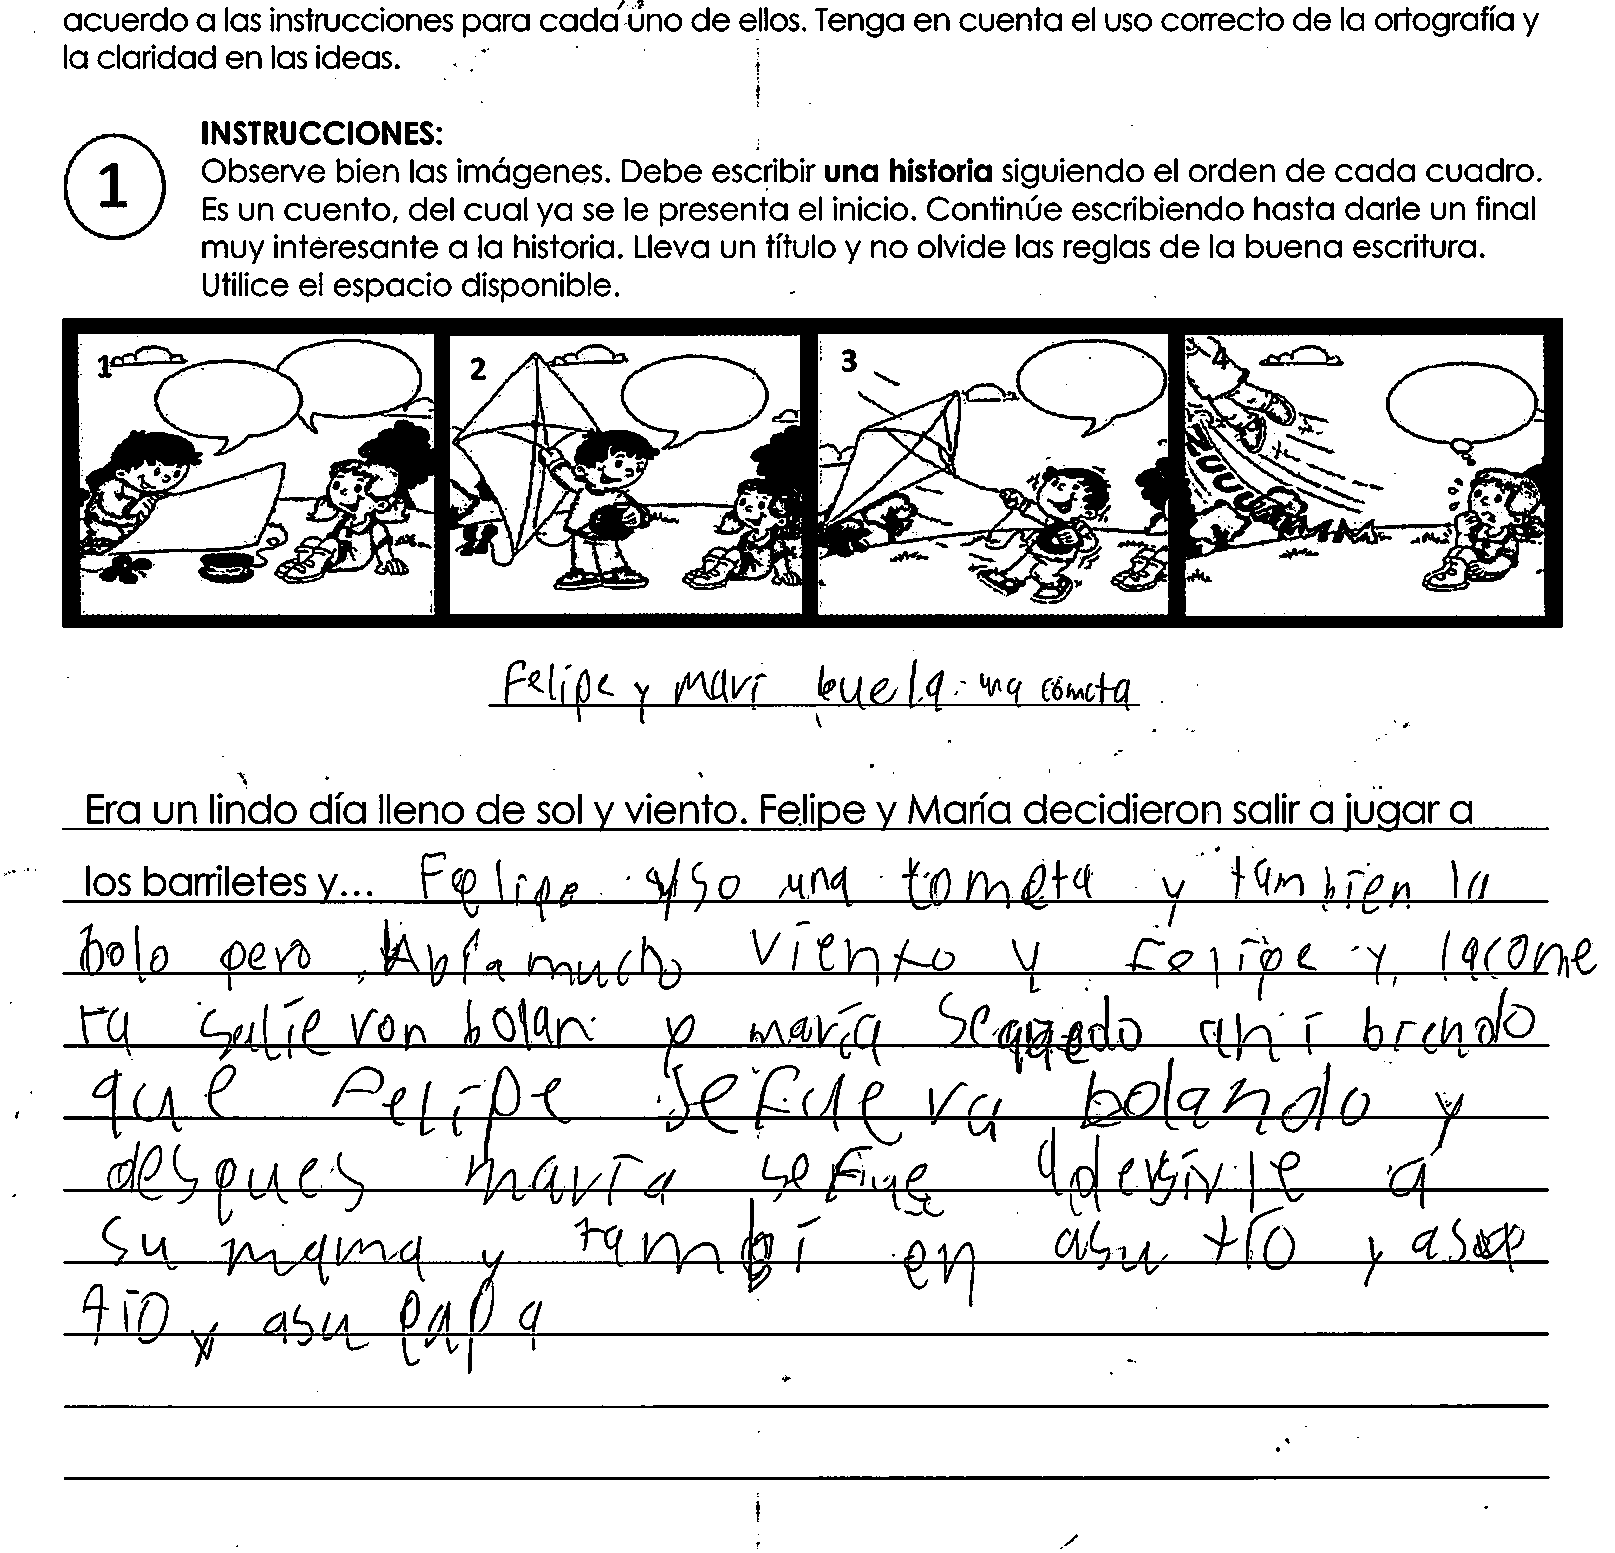 acuerdo a las instrucciones para cada uno de ellos. Tenga en cuenta el uso correcto de la ortografía y
la claridad en las ideas.
INSTRUCCIONES:
1
Observe bien las imágenes. Debe escribir una historia siguiendo el orden de cada cuadro.
Es un cuento, del cual ya se le presenta el inicio. Continúe escribiendo hasta darle un final
muy interesante a la historia. Lleva un título y no olvide las reglas de la buena escritura.
Utilice el espacio disponible.
1 2 3 4
ZUUUUMMMM
Felipe y mari buela una cometa
Era un lindo día lleno de sol y viento. Felipe y María decidieron salir a jugar a
los barriletes y... Felipe also una tometa y tambien la
bolo pero Abia mucho viento y Felipe y lacome
ta salieron bolan y maría Se quedo ahi brendo
que Felipe se fue va bolando y
despues maría se fue a
su mama y tambi en asu tío y
tio y asu papa